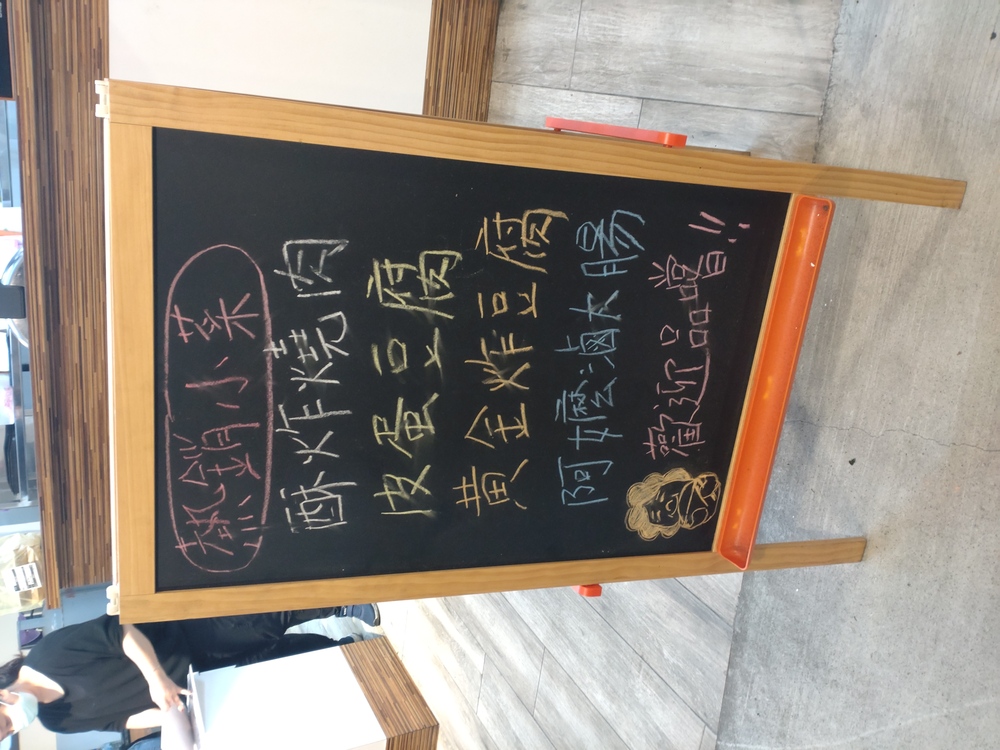 熱銷小菜
酥炸燒肉
皮蛋豆腐
黃金炸豆腐
阿嬤滷大腸
歡迎品嚐!!